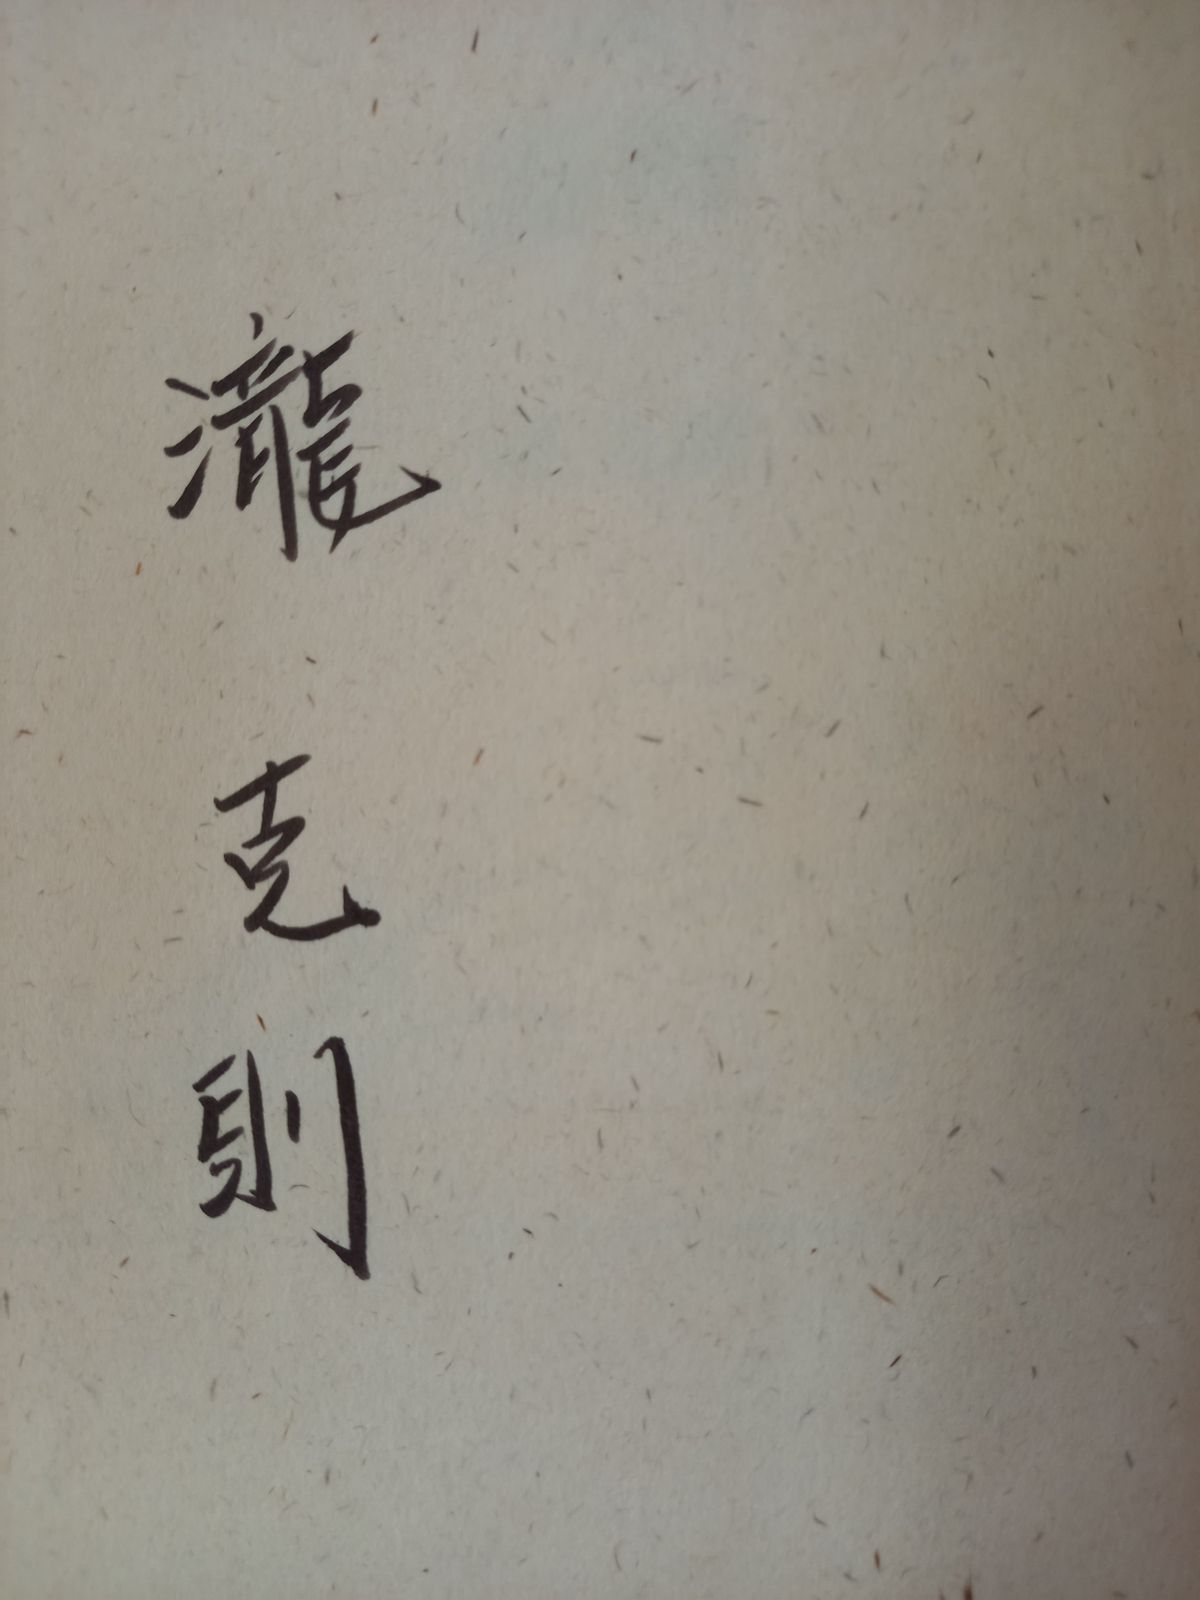 瀧克則